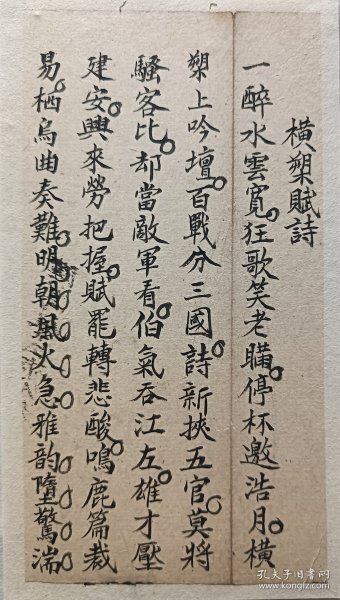 橫槊賦詩
一醉水雲寬狂歌笑老瞞停杯邀浩月橫
槊上吟壇百戰分三國詩新挾五官莫將
騷客比却當敵軍看伯氣吞江左雄才壓
建安興來勞把握賦罷轉悲酸鳴鹿篇裁
易栖烏曲奏難明朝風火急雅韵墮驚湍
孔夫子旧书网